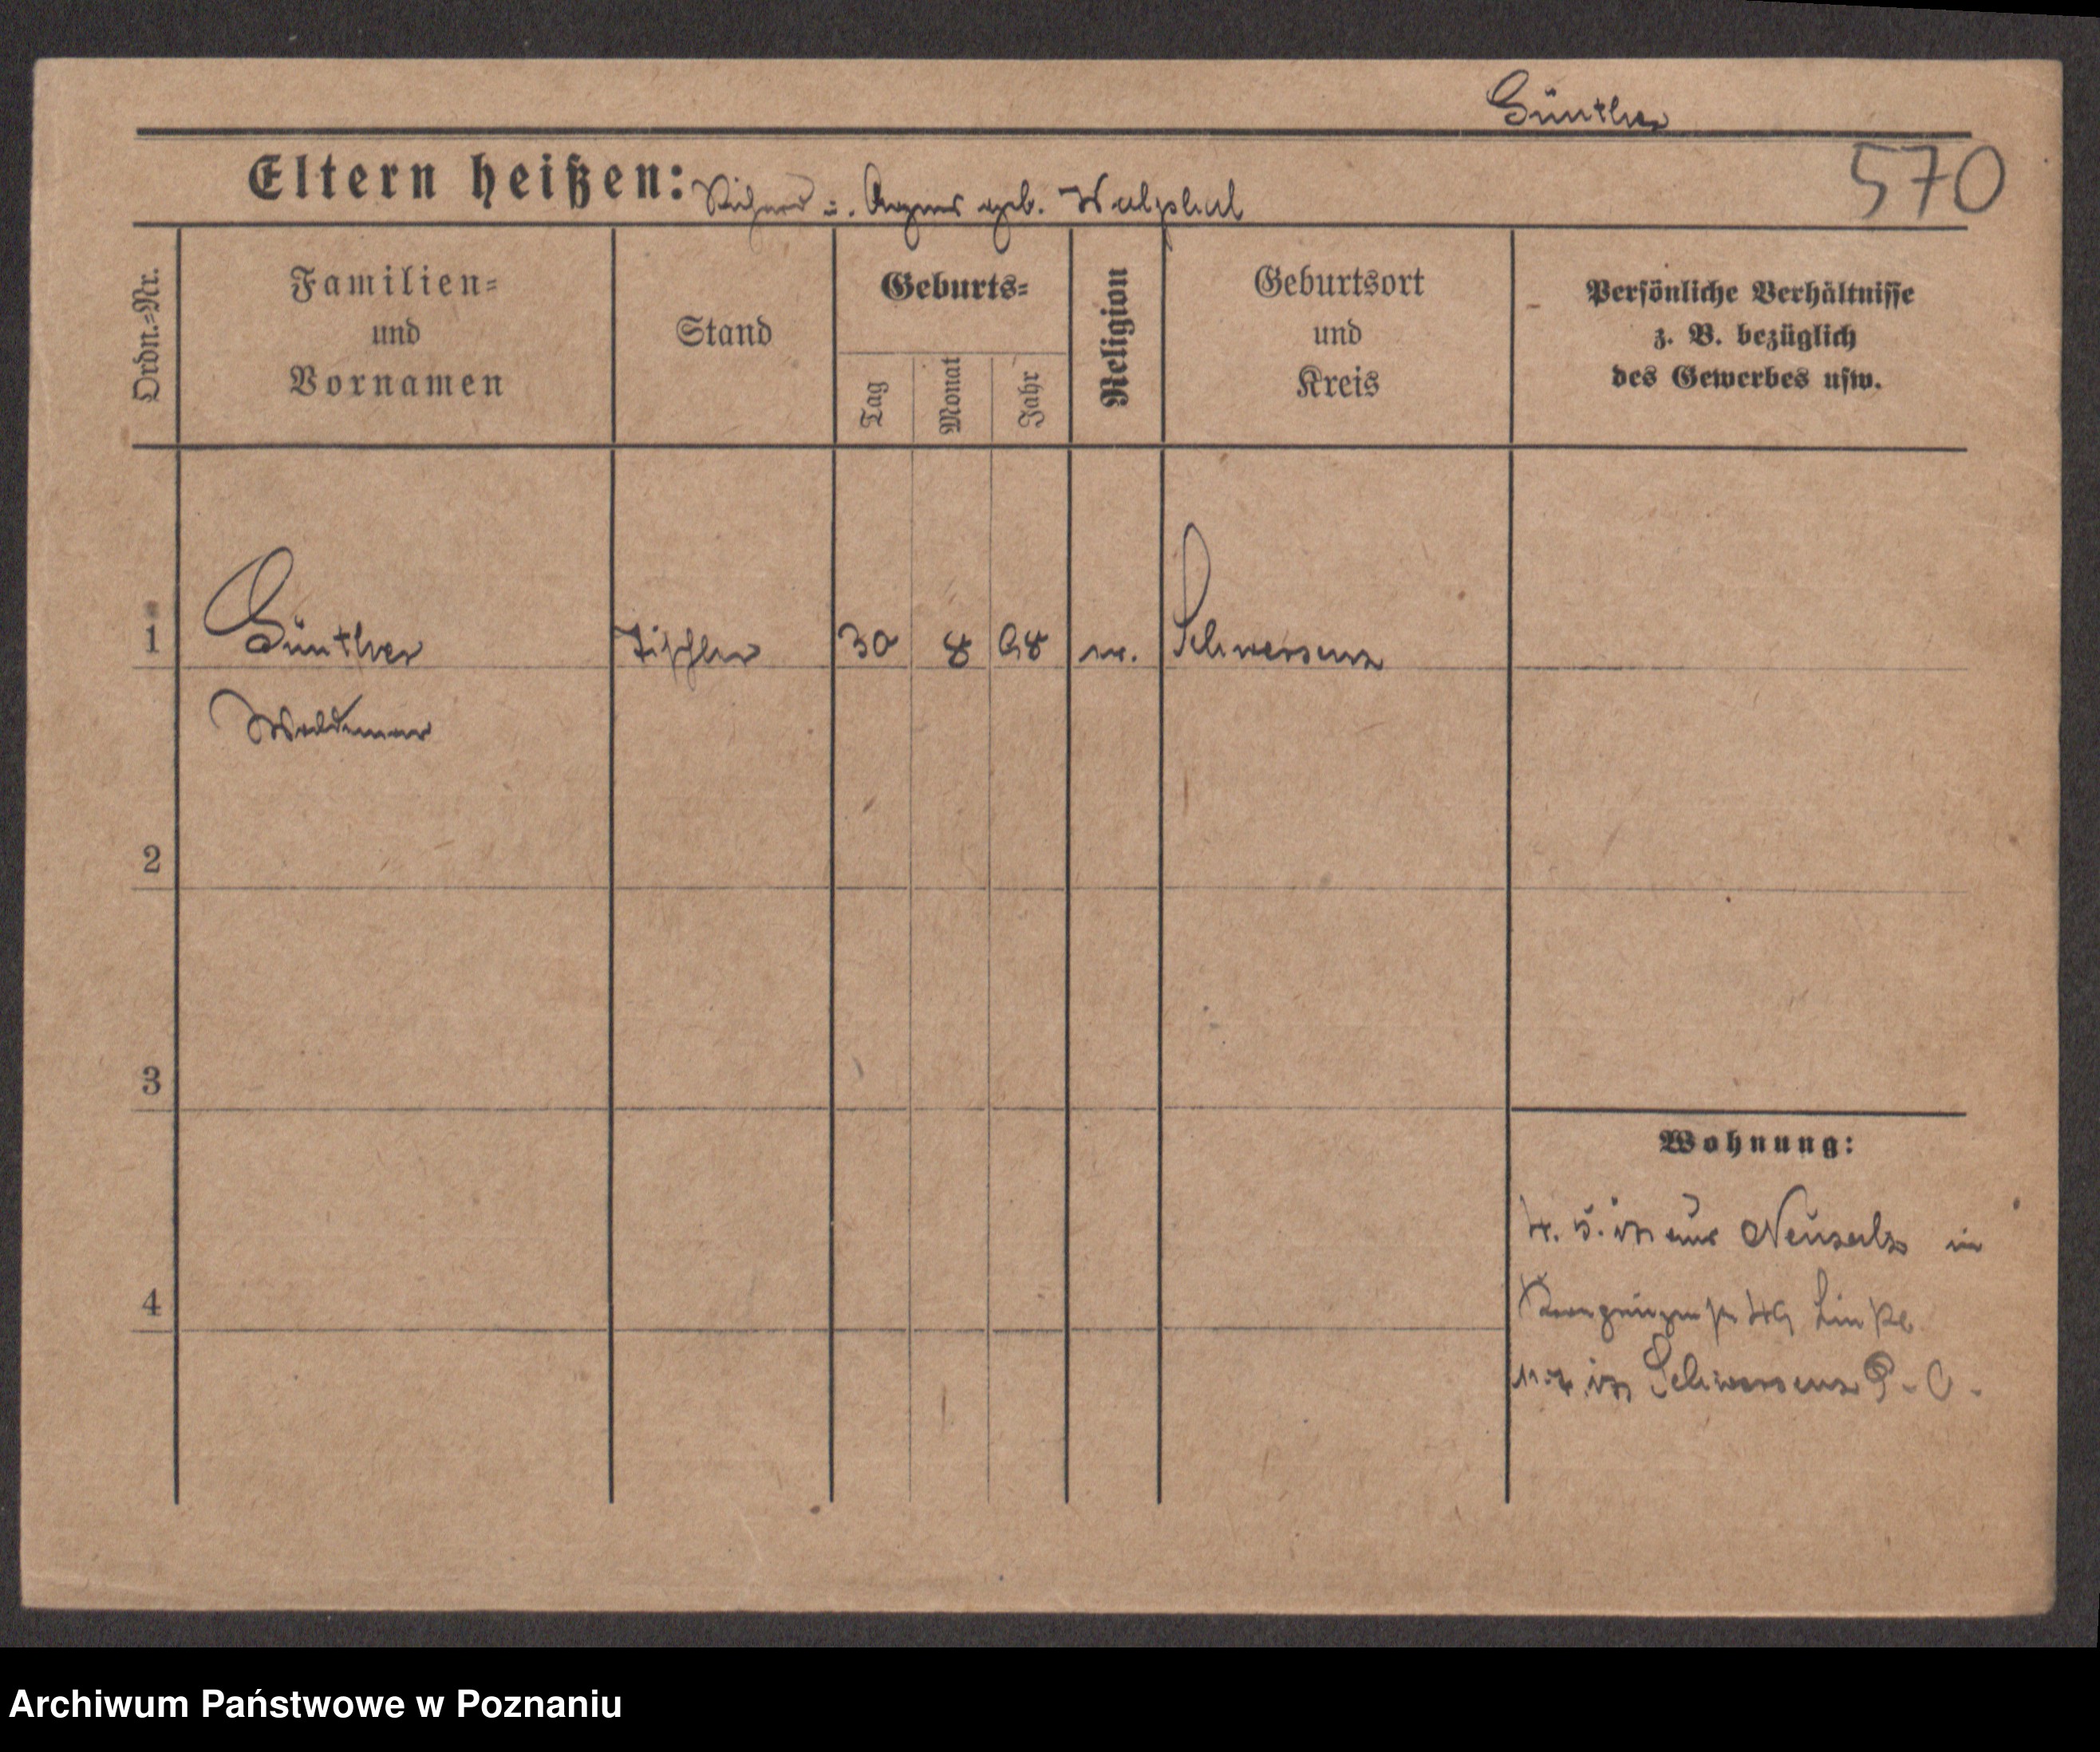 Günther
Eltern heißen: Richard u. Agnes geb. Walzphal
570
Ordn.=Nr.
Familien=
und
Vornamen
Stand
Geburts=
Tag
Monat
Jahr
Religion
Geburtsort
und
Kreis
Persönliche Verhältnisse
z. B. bezüglich
des Gewerbes usw.
1 Günther Tischler 30 8 98 ev. Schwersenz
Waldemar
2
3
Wohnung:
4. 5. aus Neusalz in
4
Linke
in Schwersenz P. O.
Archiwum Państwowe w Poznaniu